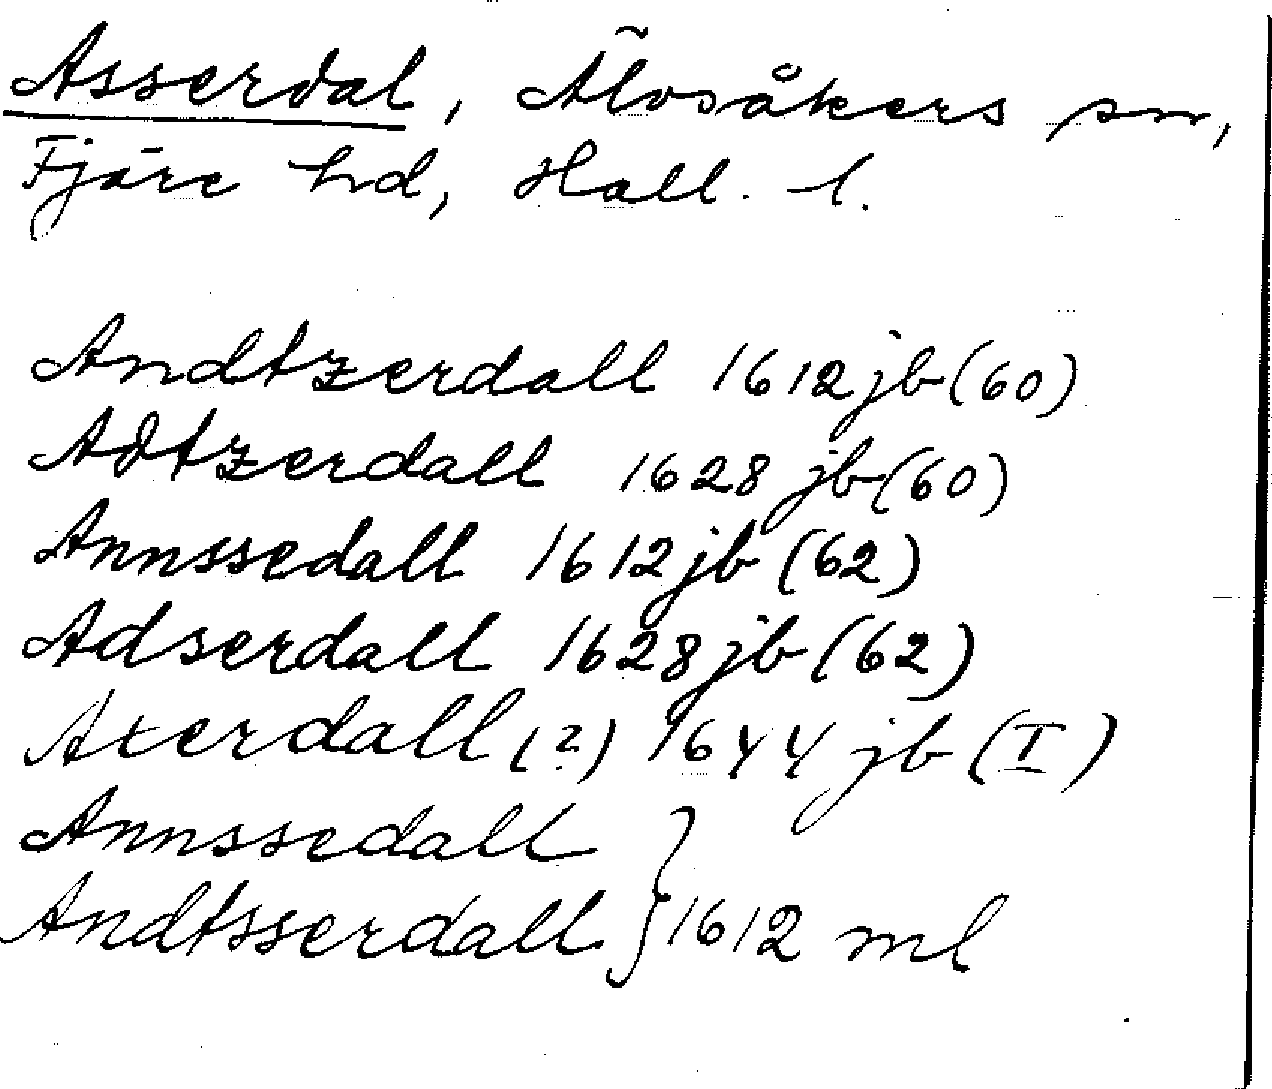 Asserdal, Älvsåkers sn,
Fjäre hd, Hall. l.
Andtzerdall 1612 jb (60)
Adtzerdall 1628 jb (60)
Annssedall 1612 jb (62)
Adserdall 1628 jb (62)
Axerdall (?) 1644 jb (I)
Annssedall
Andtsserdall } 1612 ml